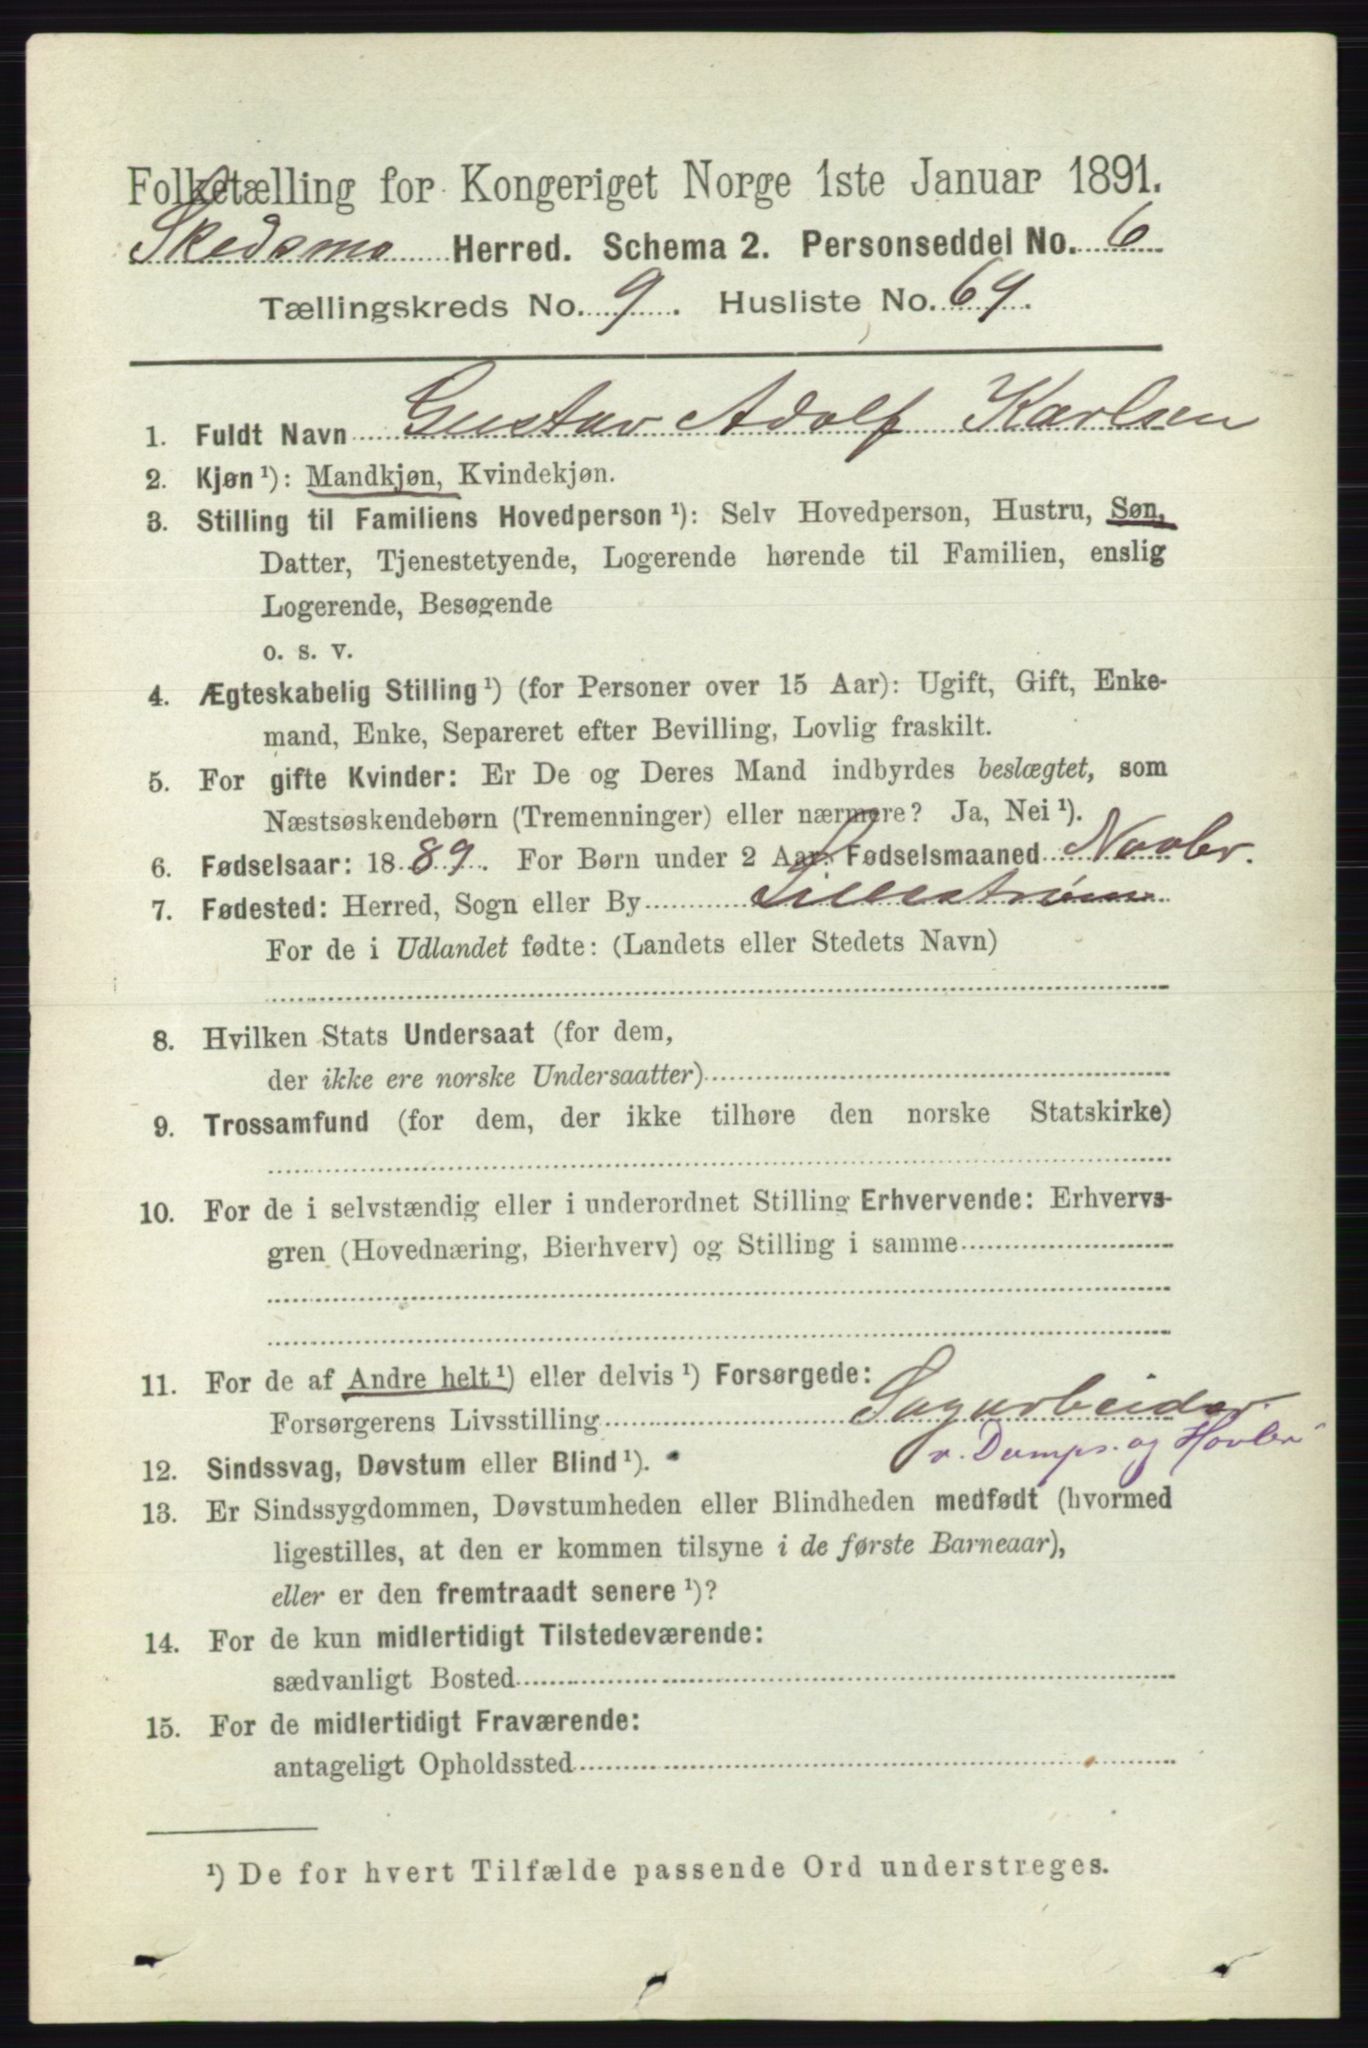 Folketælling for Kongeriget Norge 1ste Januar 1891.
Skedsmo Herred. Schema 2. Personseddel No. 6
Tællingskreds No. 9. Husliste No. 69.
1. Fuldt Navn Gustav Adolf Karlsen
2. Kjøn ¹): Mandkjøn, Kvindekjøn.
3. Stilling til Familiens Hovedperson ¹): Selv Hovedperson, Hustru, Søn,
Datter, Tjenestetyende, Logerende hørende til Familien, enslig
Logerende, Besøgende
o. s. v.
4. Ægteskabelig Stilling ¹) (for Personer over 15 Aar): Ugift, Gift, Enke-
mand, Enke, Separeret efter Bevilling, Lovlig fraskilt.
5. For gifte Kvinder: Er De og Deres Mand indbyrdes beslægtet, som
Næstsøskendebørn (Tremenninger) eller nærmere? Ja, Nei ¹).
6. Fødselsaar: 1889. For Børn under 2 Aar: Fødselsmaaned Novbr.
7. Fødested: Herred, Sogn eller By Lillestrøm
For de i Udlandet fødte: (Landets eller Stedets Navn)
8. Hvilken Stats Undersaat (for dem,
der ikke ere norske Undersaatter)
9. Trossamfund (for dem, der ikke tilhøre den norske Statskirke)
10. For de i selvstændig eller i underordnet Stilling Erhvervende: Erhvervs-
gren (Hovednæring, Bierhverv) og Stilling i samme
11. For de af Andre helt ¹) eller delvis ¹) Forsørgede:
Forsørgerens Livsstilling Sagarbeider.
v. Damps. og Høvleri
12. Sindssvag, Døvstum eller Blind ¹).
13. Er Sindssygdommen, Døvstumheden eller Blindheden medfødt (hvormed
ligestilles, at den er kommen tilsyne i de første Barneaar),
eller er den fremtraadt senere ¹)?
14. For de kun midlertidigt Tilstedeværende:
sædvanligt Bosted
15. For de midlertidigt Fraværende:
antageligt Opholdssted
¹) De for hvert Tilfælde passende Ord understreges.